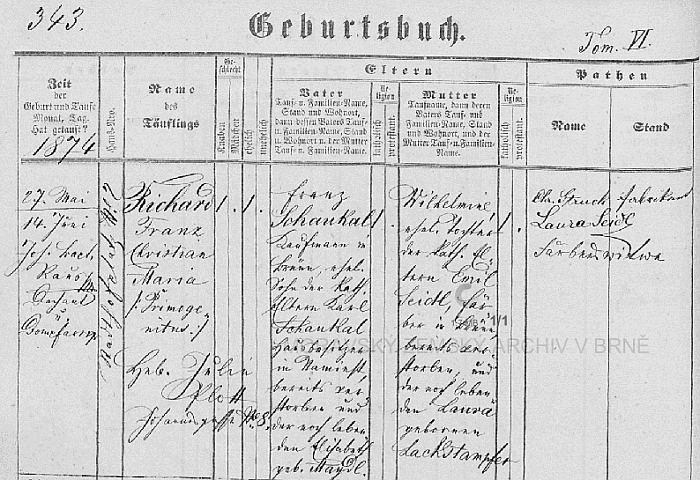 343.
Geburtsbuch.
Tom. VI.
Zeit
der
Geburt und Taufe
Monat, Tag.
Hat getauft?
1874
Haus-Nro.
Name
des
Täuflings
Geschlecht
Knaben
Mädchen
ehelich
unehelich
Eltern
Vater
Tauf- u. Familien-Name,
Stand und Wohnort,
dann dessen Vaters Tauf-
u. Familien-Name, Stand
u. Wohnort u. der Mutter
Tauf- u. Familien-Name.
Religion
katholisch
protestant.
Mutter
Taufname, dann deren
Vaters Tauf- und
Familien-Name, Stand
und Wohnort, und der
Mutter Tauf- u. Familien-
Name.
Religion
katholisch
protestant.
Pathen
Name
Stand
27. Mai
14. Juni
Dechant
u.
Dompfarrer
Richard
Franz
Christian
Maria
/: Primoge-
nitus :/
Heb. Julie
Plott
Johannsgasse No 8.
Franz
Schaukal
Kaufmann in
Brünn, ehel.
Sohn der kath.
Eltern Karl
Schaukal
Hausbesitzer
in Namiest,
bereits ver-
storben und
der noch leben-
den Elisabeth
geb. Maydl.
Wilhelmine,
ehel. Tochter
der kath. El-
tern Emil
Seidl, Fär-
ber in Brünn
bereits ver-
storben, und
der noch leben-
den Laura
gebornen
Lackstampfer
Fabrikant
Laura Seidl
Färberswitwe
1/1
MORAVSKÝ ZEMSKÝ ARCHIV V BRNĚ